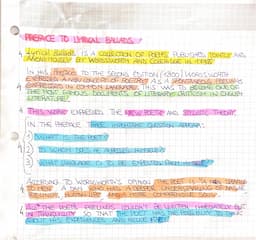 PREFACE TO LYRICAL BALLADS
LYRICAL BALLADS IS A COLLECTION OF POEMS PUBLISHED JOINTLY AND
ANONYMOUSLY BY WORDSWORTH AND COLERIDGE IN 1798
IN HIS PREFACE TO THE SECOND EDITION (1800) WORDSWORTH
EXPRESSED A NEW CONCEPT OF POETRY AS A SPONTANEOUS FEELINGS
EXPRESSED IN COMMON LANGUAGE. THIS WAS TO BECOME ONE OF
THE MOST FAMOUS DOCUMENTS OF LITERARY CRITICISM IN ENGLISH
LITERATURE.
THIS WORK EXPRESSED THE NEW POETRY AND STYLISTIC THEORY
IN THE PREFACE THREE IMPORTANT QUESTION APPEAR:
WHAT IS THE POET?
TO WHOM DOES HE ADDRESS HIMSELF?
WHAT LANGUAGE IS TO BE EXPECTED FROM HIM?
ACCORDING TO WORDSWORTH'S OPINION THE POET IS "A MAN SPEAKING
TO MEN" A MAN WHO HAS A DEEPER UNDERSTANDING OF
THE POET'S FEELINGS COULDN'T BE WRITTEN IMMEDIATELY BUT
IN TRANQUILLITY SO THAT THE POET HAS THE POSSIBILITY TO
HIS EXPERIENCES